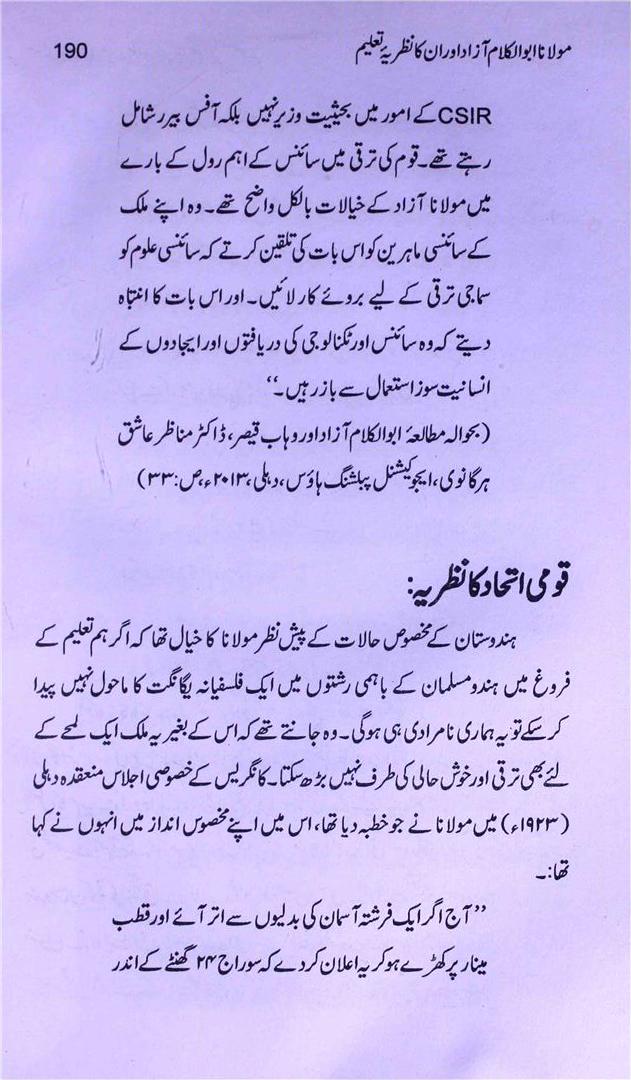 190
مولانا ابوالکلام آزاد اور ان کا نظریۂ تعلیم
CSIR کے امور میں بحیثیت وزیر نہیں بلکہ آفس بیرر شامل
رہتے تھے۔ قوم کی ترقی میں سائنس کے اہم رول کے بارے
میں مولانا آزاد کے خیالات بالکل واضح تھے۔ وہ اپنے ملک
کے سائنسی ماہرین کو اس بات کی تلقین کرتے کہ سائنسی علوم کو
سماجی ترقی کے لیے بروئے کار لائیں۔ اور اس بات کا انتباہ
دیتے کہ وہ سائنس اور ٹکنالوجی کی دریافتوں اور ایجادوں کے
انسانیت سوز استعمال سے باز رہیں۔“
(بحوالہ مطالعۂ ابوالکلام آزاد اور وہاب قیصر، ڈاکٹر مناظر عاشق
ہرگانوی، ایجوکیشنل پبلشنگ ہاؤس، دہلی، ۲۰۱۳ء، ص: ۳۳)
قومی اتحاد کا نظریہ:
ہندوستان کے مخصوص حالات کے پیش نظر مولانا کا خیال تھا کہ اگر ہم تعلیم کے
فروغ میں ہندو مسلمان کے باہمی رشتوں میں ایک فلسفیانہ یگانگت کا ماحول نہیں پیدا
کر سکے تو یہ ہماری نامرادی ہی ہوگی۔ وہ جانتے تھے کہ اس کے بغیر یہ ملک ایک لمحے کے
لئے بھی ترقی اور خوش حالی کی طرف نہیں بڑھ سکتا۔ کانگریس کے خصوصی اجلاس منعقدہ دہلی
(۱۹۲۳ء) میں مولانا نے جو خطبہ دیا تھا، اس میں اپنے مخصوس انداز میں انہوں نے کہا
تھا:۔
”آج اگر ایک فرشتہ آسمان کی بدلیوں سے اتر آئے اور قطب
مینار پر کھڑے ہو کر یہ اعلان کر دے کہ سوراج ۲۴ گھنٹے کے اندر